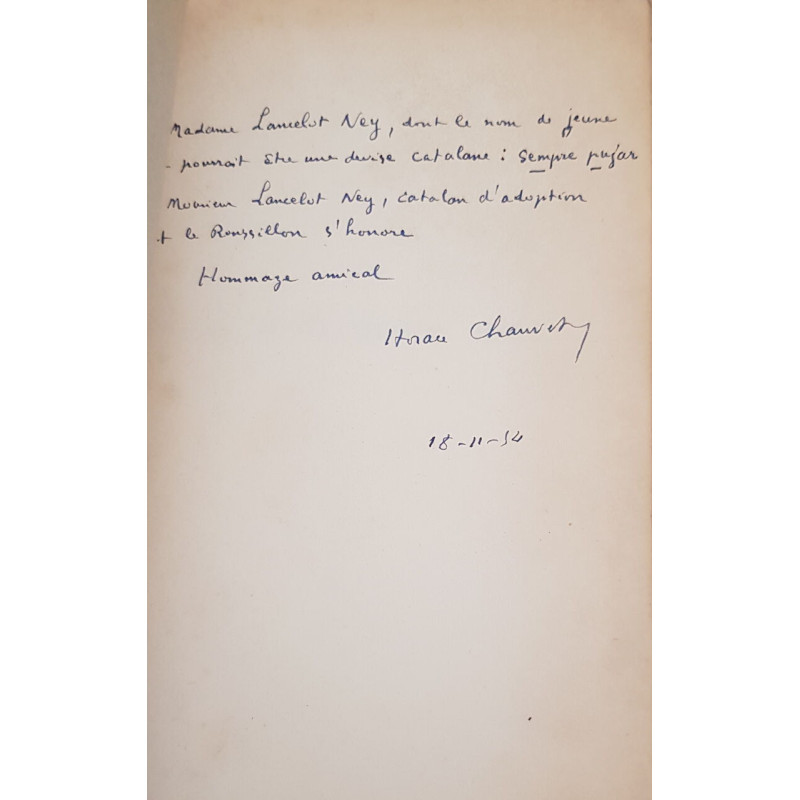 Madame Lancelot Ney, dont le nom de jeune
- pourrait être une devise catalane : sempre pujar
Monsieur Lancelot Ney, catalan d'adoption
t le Roussillon s'honore
Hommage amical
Horace Chauvet
18-11-54